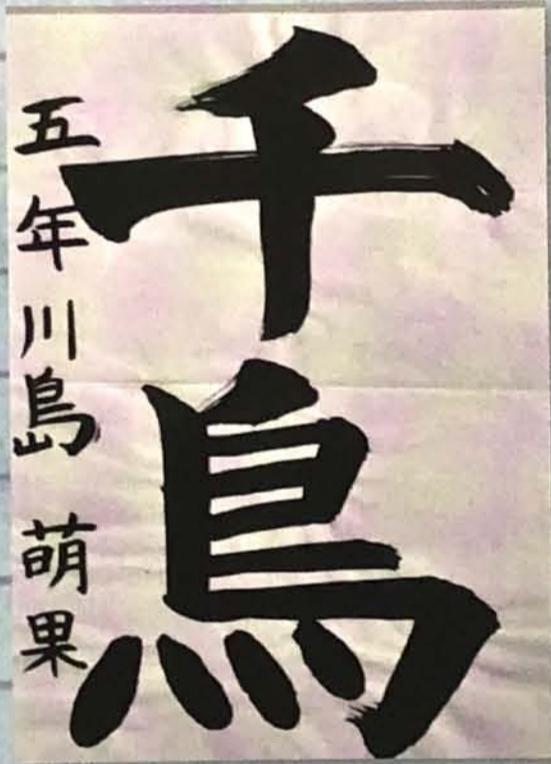 千鳥
五年川島 萌果